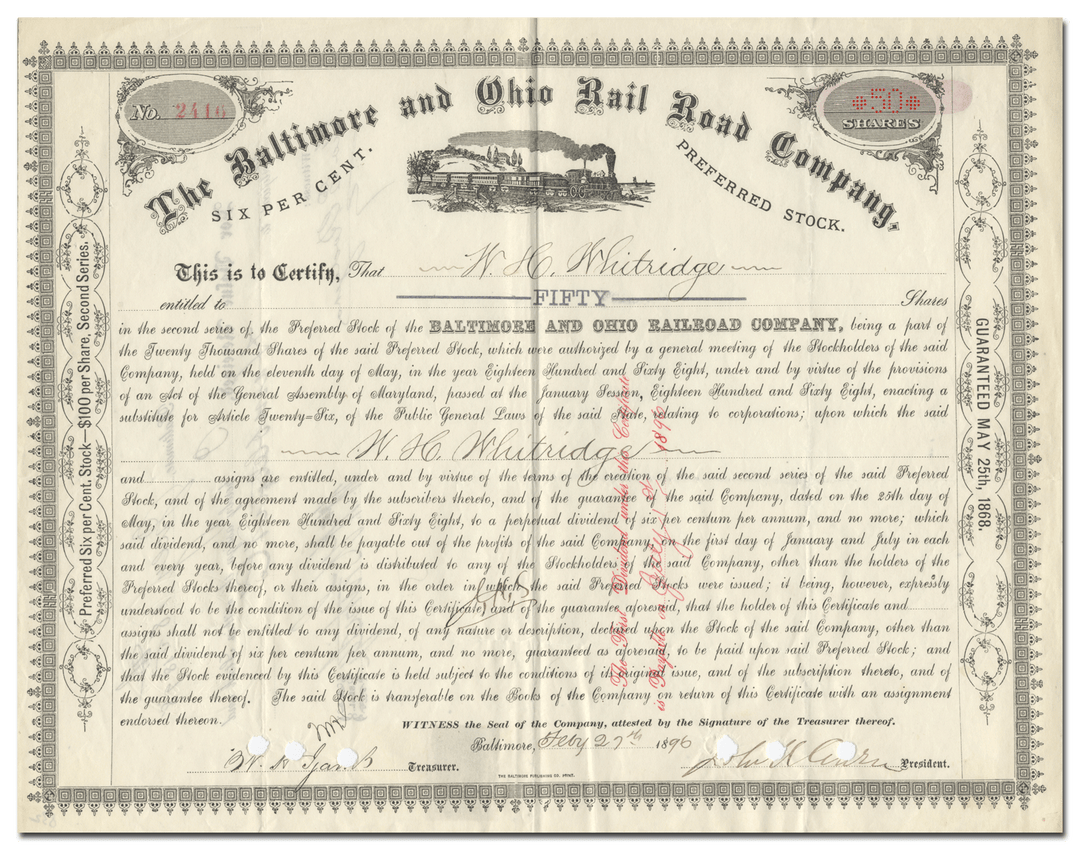 No. 2416
50
SHARES
The Baltimore and Ohio Rail Road Company,
SIX PER CENT.
PREFERRED STOCK.
This is to Certify, That W. H. Whitridge
entitled to FIFTY Shares
in the second series of the Preferred Stock of the BALTIMORE AND OHIO RAILROAD COMPANY, being a part of
the Twenty Thousand Shares of the said Preferred Stock, which were authorized by a general meeting of the Stockholders of the said
Company, held on the eleventh day of May, in the year Eighteen Hundred and Sixty Eight, under and by virtue of the provisions
of an Act of the General Assembly of Maryland, passed at the January Session, Eighteen Hundred and Sixty Eight, enacting a
substitute for Article Twenty-Six, of the Public General Laws of the said State, relating to corporations; upon which the said
W. H. Whitridge
and assigns are entitled, under and by virtue of the terms of the creation of the said second series of the said Preferred
Stock, and of the agreement made by the subscribers thereto, and of the guarantee of the said Company, dated on the 25th day of
May, in the year Eighteen Hundred and Sixty Eight, to a perpetual dividend of six per centum per annum, and no more; which
said dividend, and no more, shall be payable out of the profits of the said Company, on the first day of January and July in each
and every year, before any dividend is distributed to any of the Stockholders of the said Company, other than the holders of the
Preferred Stocks thereof, or their assigns, in the order in which the said Preferred Stocks were issued; it being, however, expressly
understood to be the condition of the issue of this Certificate and of the guarantee aforesaid, that the holder of this Certificate and
assigns shall not be entitled to any dividend, of any nature or description, declared upon the Stock of the said Company, other than
the said dividend of six per centum per annum, and no more, guaranteed as aforesaid, to be paid upon said Preferred Stock; and
that the Stock evidenced by this Certificate is held subject to the conditions of its original issue, and of the subscription thereto, and of
the guarantee thereof. The said Stock is transferable on the Books of the Company on return of this Certificate with an assignment
endorsed thereon.
WITNESS the Seal of the Company, attested by the Signature of the Treasurer thereof.
Baltimore, Feby 27th 1896
Treasurer.
President.
THE BALTIMORE PUBLISHING CO. PRINT.
Preferred Six per Cent. Stock—$100 per Share, Second Series.
GUARANTEED MAY 25th, 1868.
The First Dividend under this Certificate
is Payable on July 1st 1896